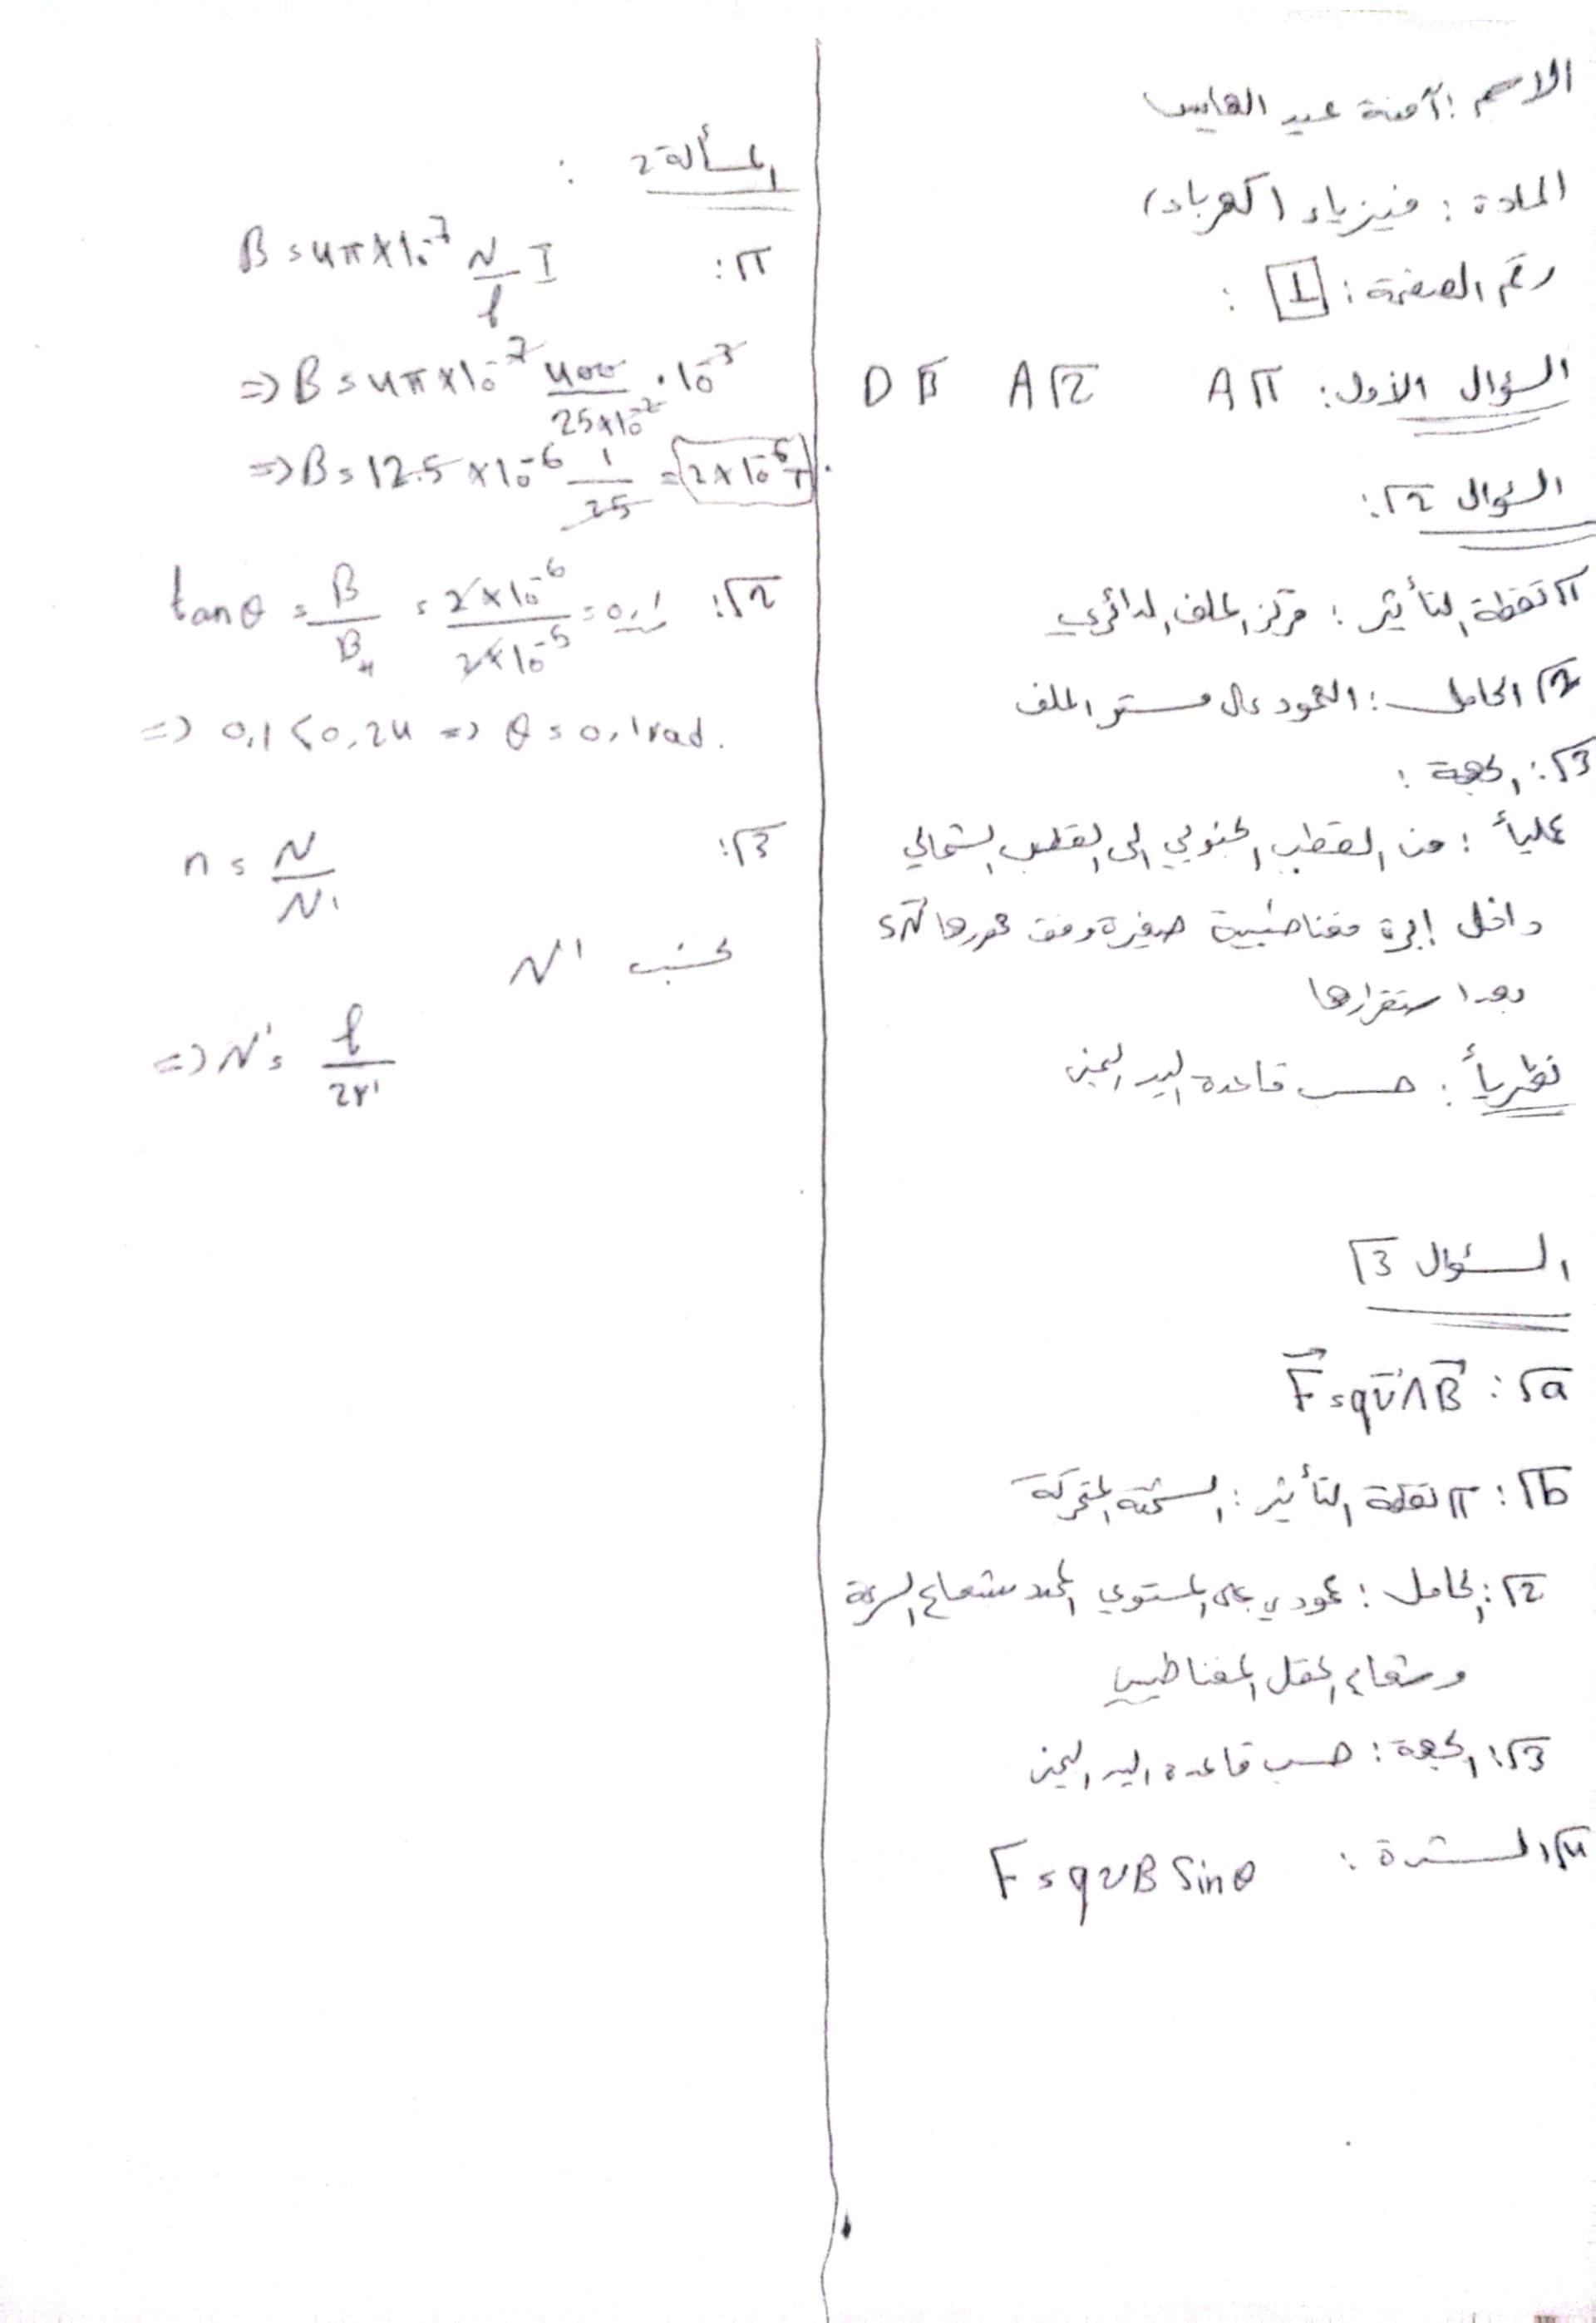 الاسم : آمنة عبد الهايس
المادة : فيزياء (كهرباء)
رقم الصفحة : 1 :
السؤال الأول: 1) A 2) A 3) D
السؤال 2:
1) نقطة التأثير : مركز الملف الدائري
2) الحامل : العمود على مستو الملف
3) : الجهة :
عملياً : من القطب الجنوبي الى القطب الشمالي
داخل إبرة مغناطيسية صغيرة وفق محورها SN
بعد استقرارها
نظرياً : حسب قاعدة اليد اليمنى
السؤال 3
a : F = qv∧B
b : 1) نقطة التأثير : الشحنة المتحركة
2) : الحامل : عمودي على المستوي المحدد بشعاع السرعة
وشعاع الحقل المغناطيسي
3) : الجهة : حسب قاعدة اليد اليمنى
4) الشدة : F = qvB Sinθ
المسألة 2 :
1) : B = 4π×10^-7 N/l I
=> B = 4π×10^-7 400/25×10^-2 . 10^-3
=> B = 12.5 ×10^-6 1/25 = 2×10^-6 T
2) : tanθ = B/B_H = 2×10^-6/2×10^-5 = 0,1
=> 0,1 < 0,24 => θ = 0,1 rad.
3) : n = N/N'
نحسب N'
=> N' = l/2r'